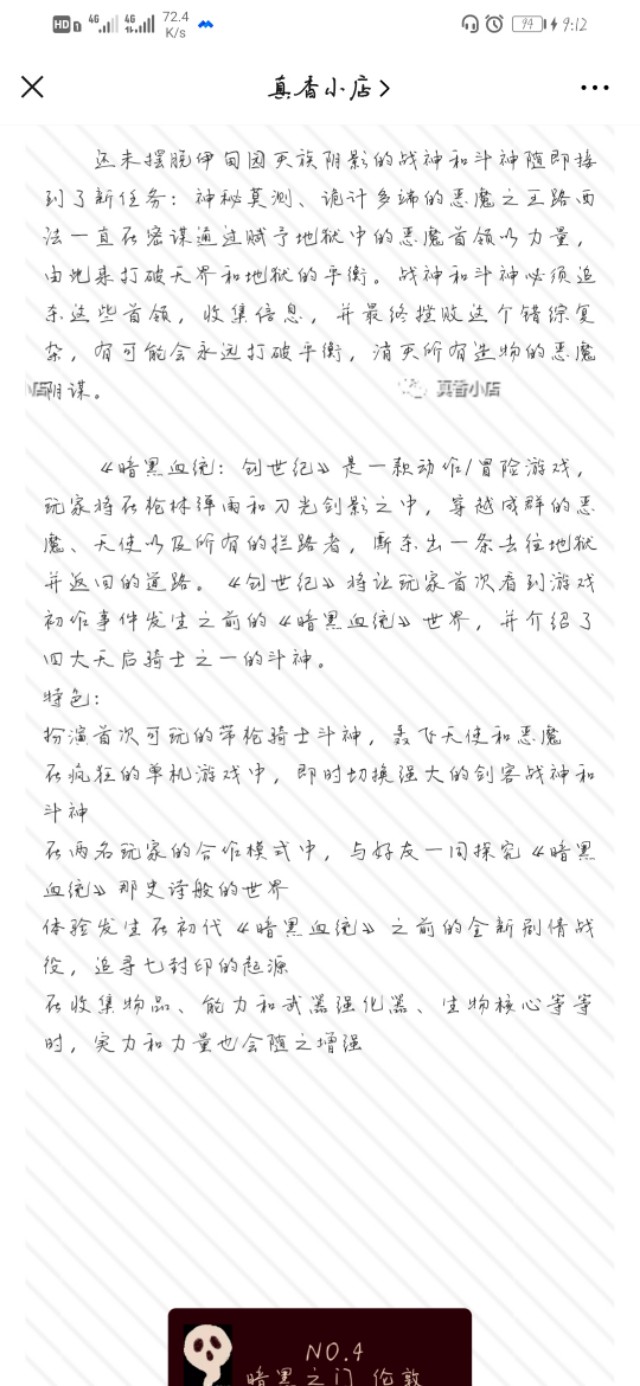 HD 1 4G 4G 72.4 K/s 94 9:12
真香小店
还未摆脱伊甸园灭族阴影的战神和斗神随即接
到了新任务：神秘莫测、诡计多端的恶魔之王路西
法一直在密谋通过赋予地狱中的恶魔首领以力量，
由此来打破天界和地狱的平衡。战神和斗神必须追
杀这些首领，收集信息，并最终挫败这个错综复
杂，有可能会永远打破平衡，消灭所有造物的恶魔
阴谋。
小店
真香小店
《暗黑血统：创世纪》是一款动作/冒险游戏，
玩家将在枪林弹雨和刀光剑影之中，穿越成群的恶
魔、天使以及所有的拦路者，厮杀出一条去往地狱
并返回的道路。《创世纪》将让玩家首次看到游戏
初作事件发生之前的《暗黑血统》世界，并介绍了
四大天启骑士之一的斗神。
特色：
扮演首次可玩的带枪骑士斗神，轰飞天使和恶魔
在疯狂的单机游戏中，即时切换强大的剑客战神和
斗神
在两名玩家的合作模式中，与好友一同探究《暗黑
血统》那史诗般的世界
体验发生在初代《暗黑血统》之前的全新剧情战
役，追寻七封印的起源
在收集物品、能力和武器强化器、生物核心等等
时，实力和力量也会随之增强
NO.4
暗黑之门 伦敦